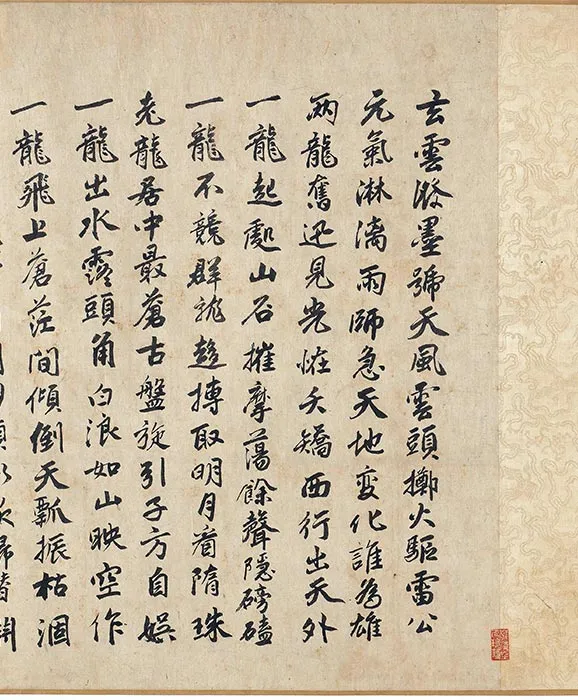 玄雲潑墨號天風雲頭擲火驅雷公
元氣淋漓雨師急天地變化誰為雄
兩龍奮迅見光怪夭矯西行出天外
一龍起處山石摧摩蕩餘聲隱磅磕
一龍不競群龍趨搏取明月看隋珠
老龍居中最蒼古盤旋引子方自娛
一龍出水露頭角白浪如山映空作
一龍飛上蒼茫間傾倒天瓢振枯涸